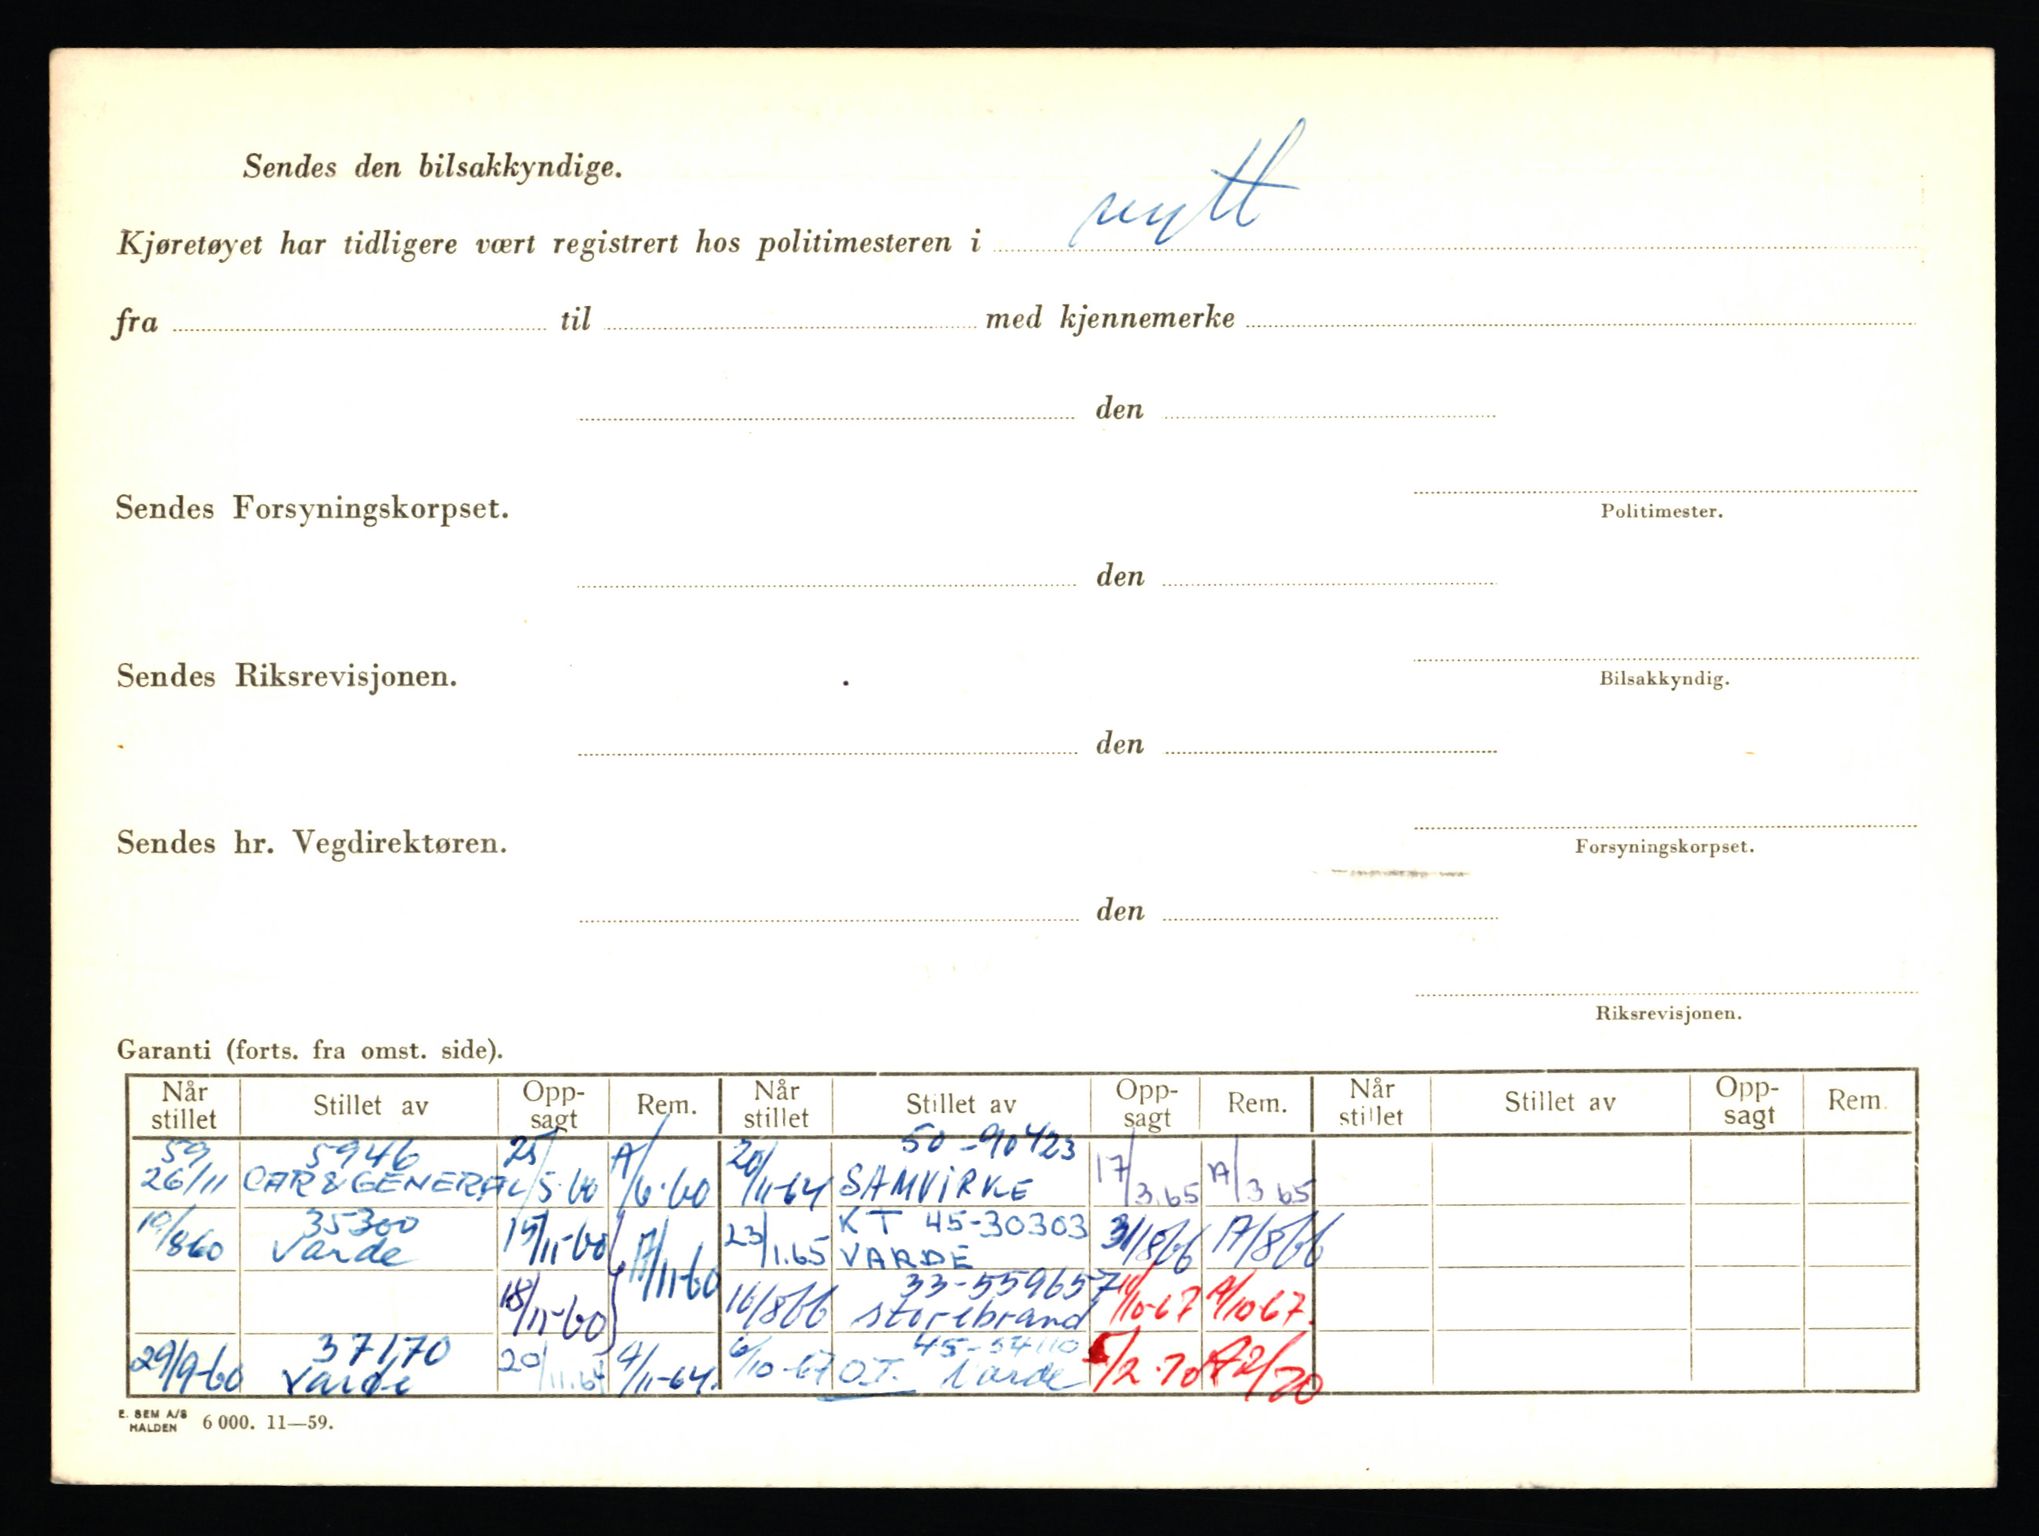 Sendes den bilsakkyndige.
Kjøretøyet har tidligere vært registrert hos politimesteren i nytt
fra til med kjennemerke
den
Sendes Forsyningskorpset.
Politimester.
den
Sendes Riksrevisjonen.
Bilsakkyndig.
den
Sendes hr. Vegdirektøren.
Forsyningskorpset.
den
Riksrevisjonen.
Garanti (forts. fra omst. side).
Når stillet Stillet av Opp-sagt Rem. Når stillet Stillet av Opp-sagt Rem. Når stillet Stillet av Opp-sagt Rem.
59 5946 25 50-90423
26/11 CAR & GENERAL /5-60 A/6-60 20/11-64 SAMVIRKE 17/3.65 A/3 65
10/860 35300 15/11-60 A/11-60 23/1.65 KT 45-30303 31/866 A/866
Varde VARDE
18/11-60 16/866 33-559657 /10-67 A/10-67.
Storebrand
29/9-60 37170 20/11.64 A/11-64. 6/10-67 45-54110 /2.70 A2/70
Varde O.T. Varde
E. SEM A/S
HALDEN 6 000. 11—59.